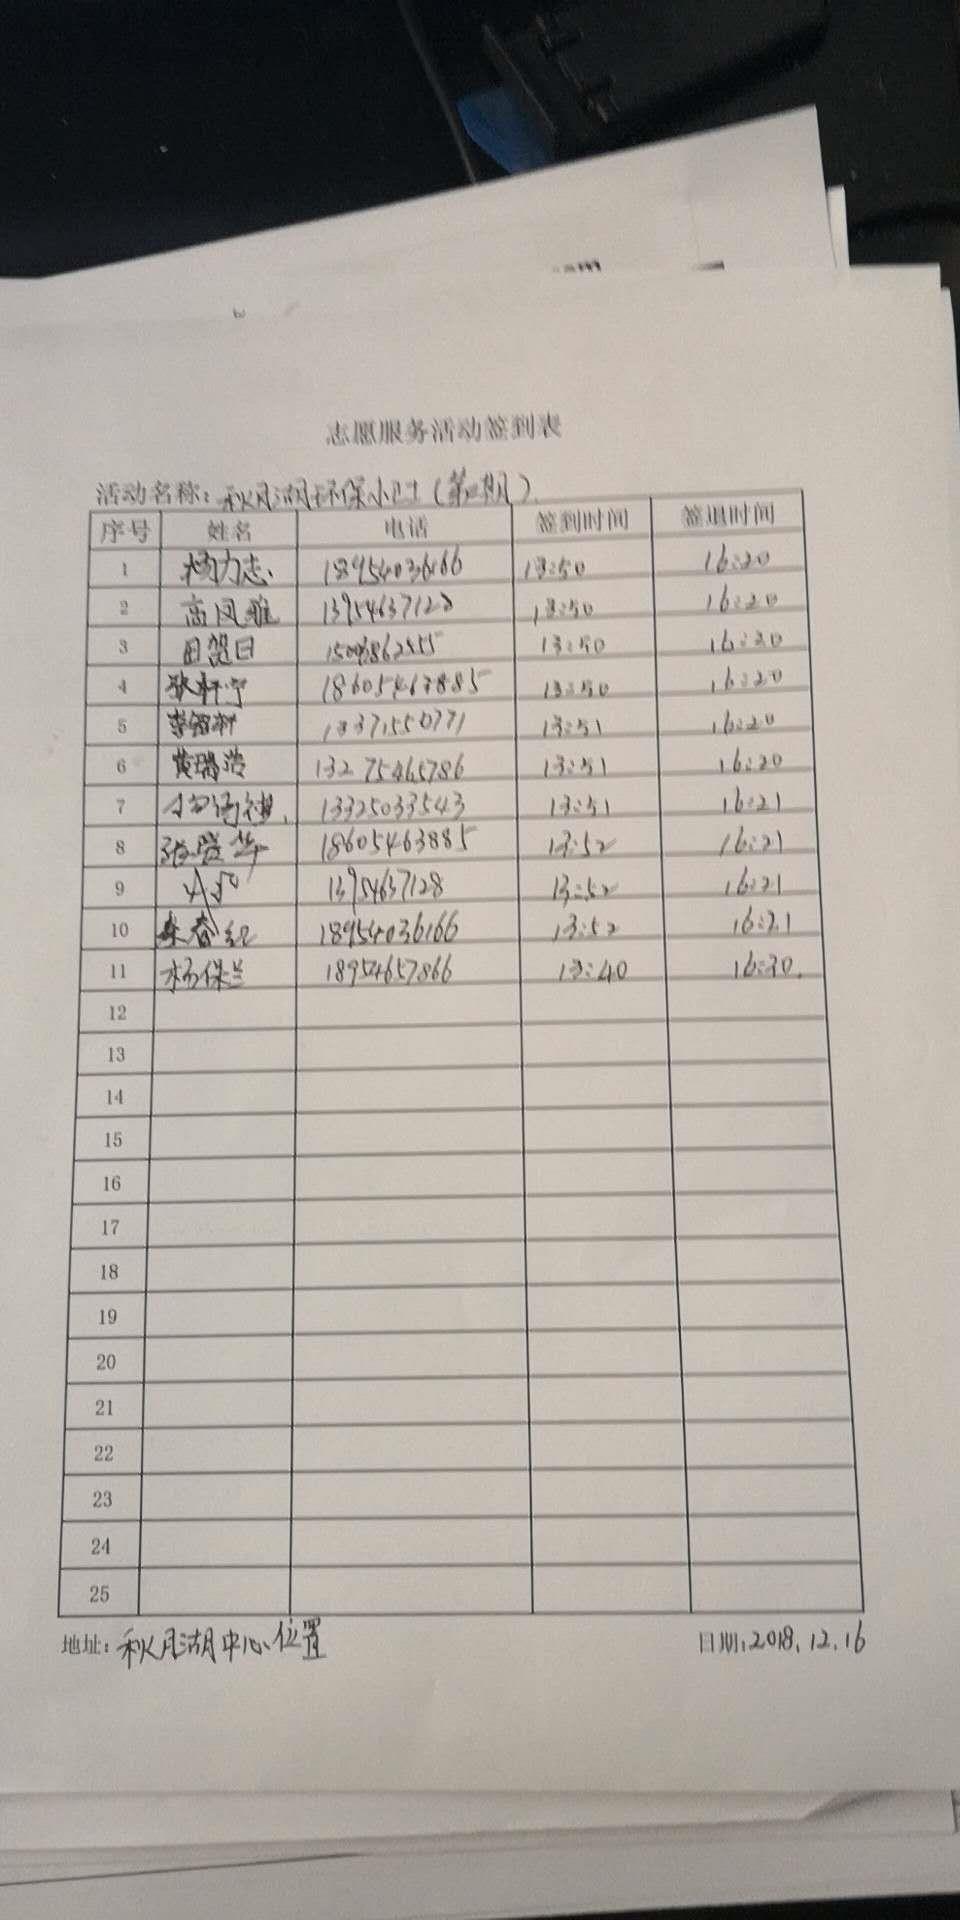 志愿服务活动签到表
活动名称：秋月湖环保小卫士（第二期）
序号 姓名 电话 签到时间 签退时间
1 杨力志 18954036166 13:50 16:20
2 高凤雅 13954637128 13:50 16:20
3 13:50 16:20
4 18605463885 13:50 16:20
5 李智轩 13371550771 13:51 16:20
6 黄瑞浩 13275465786 13:51 16:20
7 13325033543 13:51 16:21
8 18605463885 13:52 16:21
9 13954637128 13:52 16:21
10 18954036166 13:52 16:21
11 杨保兰 18954657866 13:40 16:30
12
13
14
15
16
17
18
19
20
21
22
23
24
25
地址：秋月湖中心位置 日期：2018.12.16